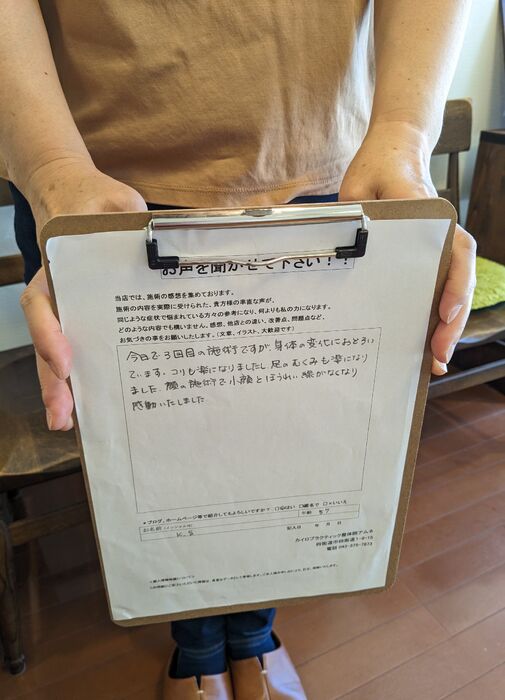 お声を聞かせて下さい！！
当店では、施術の感想を集めております。
施術の内容を実際に受けられた、貴方様の率直な声が、
同じような症状で悩まれている方々の参考になり、何よりも私の力になります。
どのような内容でも構いません。感想、他店との違い、改善点、問題点など、
お気づきの事をお願いいたします。（文章、イラスト、大歓迎です）
今日で3回目の施術ですが、身体の変化におどろい
ています。コリも楽になりましたし、足のむくみも楽になり
ました。顔の施術で小顔とほうれい線がなくなり
感動いたしました
＊ブログ、ホームページ等で紹介してもよろしいですか？ □はい □匿名で □いいえ
お名前 年齢 57
K.S 記入日 年 月 日
カイロプラクティック整体院アムネ
四街道市四街道
電話